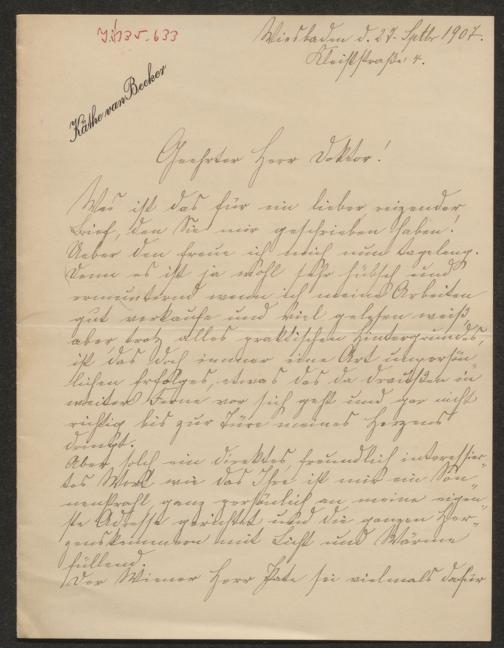 Käthe van Becker
Wiesbaden d. 27. Septbr 1907.
Kleiststraße 4.
Geehrter Herr Doktor!
Was ist das für ein lieber, reizender
Brief, den Sie mir geschrieben haben!
Ueber den freue ich mich nun tagelang.
Denn es ist ja wohl sehr hübsch und
ermunternd wenn ich meine Arbeiten
gut verkaufe und viel gelesen weiß
aber trotz alles praktischen Hintergrundes,
ist das doch immer eine Art unpersön
lichen Erfolges, etwas das da draußen in
weiter Ferne vor sich geht und gar nicht
richtig bis zur Türe meines Herzens
dringt.
Aber solch ein direktes, freundlich interessier-
tes Wort wie das Ihre ist mir ein Son-
nenstrahl, ganz persönlich an meine eigen-
ste Adresse gerichtet und die ganzen Her-
zenskammern mit Licht und Wärme
füllend.
Der Wiener Herr Pate sei vielmals dafür